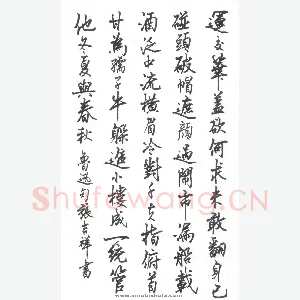 運交華蓋欲何求未敢翻身已
碰頭破帽遮顏過鬧市漏船載
酒泛中流橫眉冷對千夫指俯首
甘為孺子牛躲進小樓成一統管
他冬夏與春秋魯迅句張吉祥書
Shufawang.CN